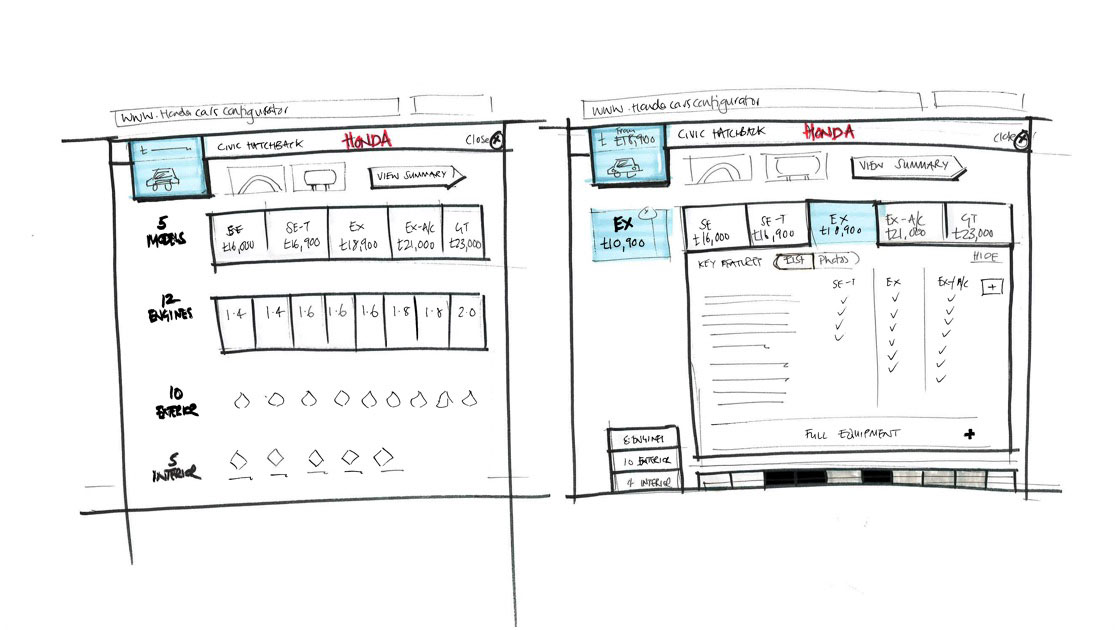 www.Honda cars configurator
£
CIVIC HATCHBACK
HONDA
Close X
VIEW SUMMARY
5 MODELS
SE £16,000
SE-T £16,900
EX £18,900
EX-A/C £21,000
GT £23,000
12 ENGINES
1.4
1.4
1.6
1.6
1.6
1.8
1.8
2.0
10 EXTERIOR
5 INTERIOR
www.Honda cars configurator
From £18,900
CIVIC HATCHBACK
HONDA
Close X
VIEW SUMMARY
EX £10,900
SE £16,000
SE-T £16,900
EX £18,900
EX-A/C £21,000
GT £23,000
KEY FEATURES
LIST
Photos
HIDE
SE-T
EX
EX-A/C
+
FULL EQUIPMENT +
8 ENGINES
10 EXTERIOR
4 INTERIOR